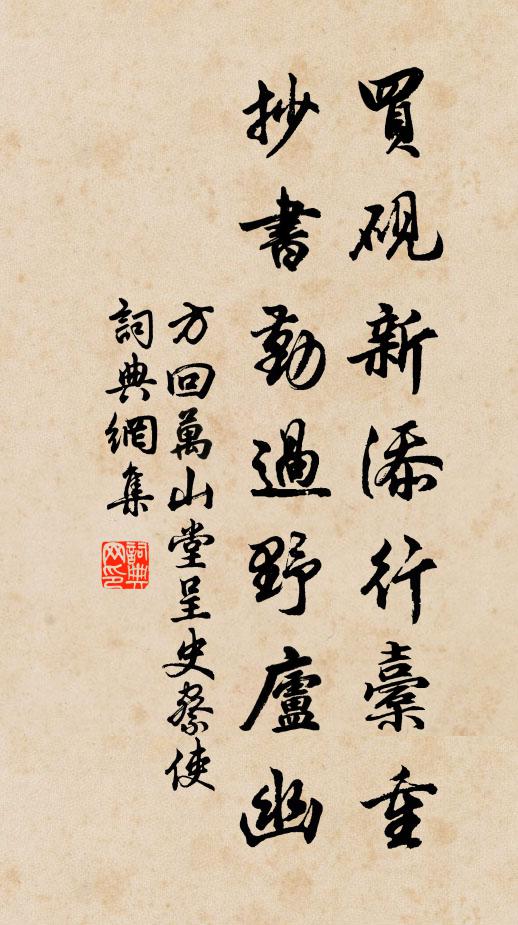 買硯新添行橐重
抄書勤過野廬幽
方回萬山堂呈史察使
詞典網集
詞典
網印